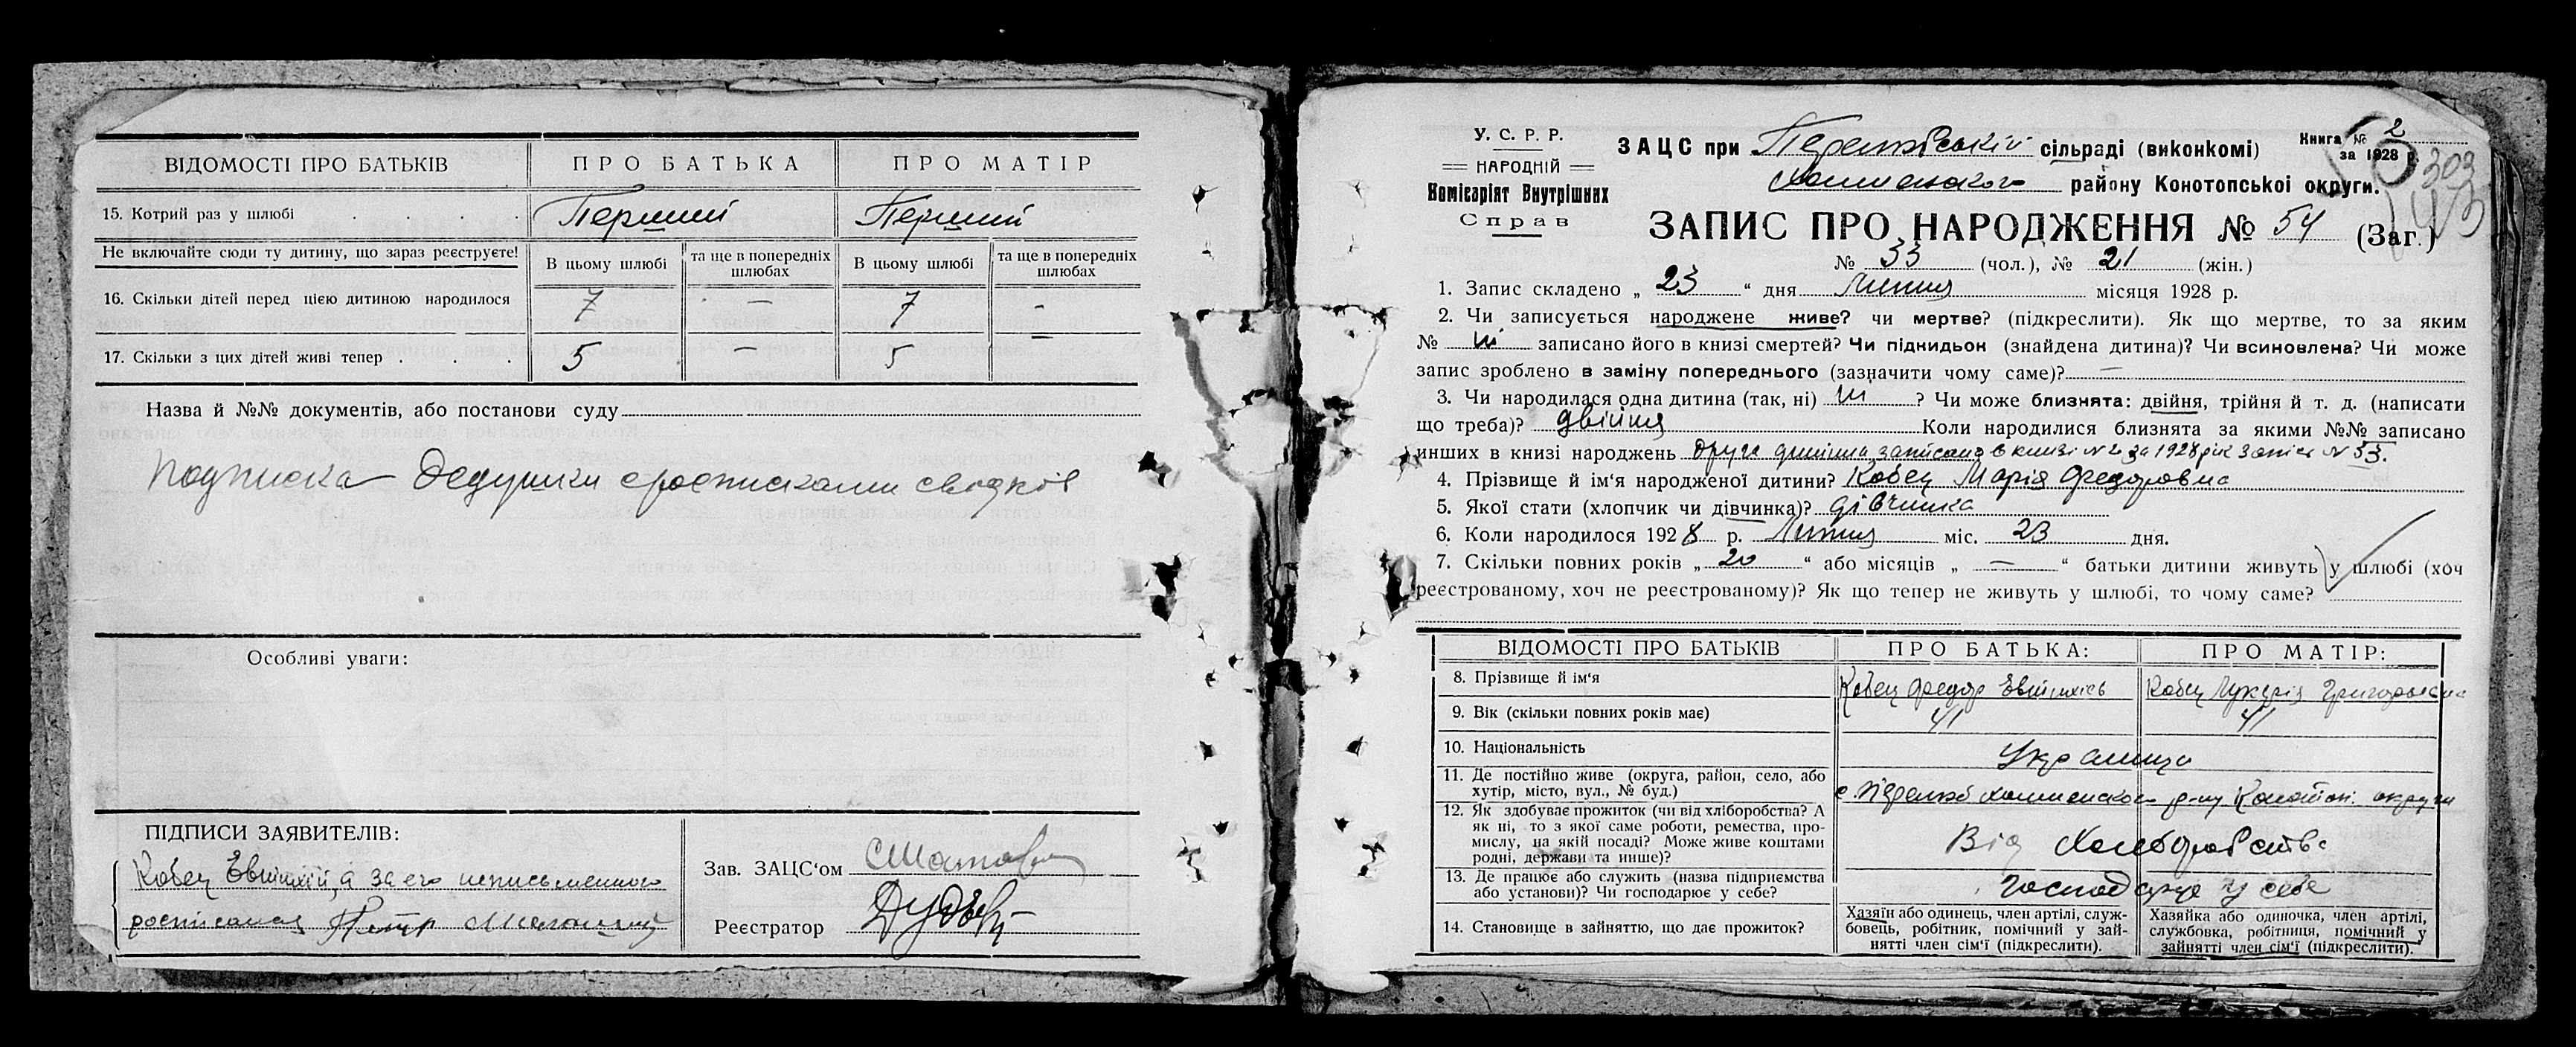 ВІДОМОСТІ ПРО БАТЬКІВ ПРО БАТЬКА ПРО МАТІР
15. Котрий раз у шлюбі . . . . Перший Перший
Не включайте сюди ту дитину, що зараз реєструєте! В цьому шлюбі та ще в попередніх шлюбах В цьому шлюбі та ще в попередніх шлюбах
16. Скільки дітей перед цією дитиною народилося 7 — 7 -
17. Скільки з цих дітей живі тепер . . . 5 — 5 —
Назва й №№ документів, або постанови суду
подписка Дедушки
Особливі уваги:
ПІДПИСИ ЗАЯВИТЕЛІВ:
Кобец а за его неписьменного
росписался Петр
Зав. ЗАЦС‘ом
Реєстратор
У. С. Р. Р.
НАРОДНІЙ
Комісаріят Внутрішних
Справ
ЗАЦС при сільраді (виконкомі)
району Конотопської округи.
Книга № 2
за 1928 р.
303
ЗАПИС ПРО НАРОДЖЕННЯ № 54 (Заг.)
№ 33 (чол.), № 21 (жін.)
1. Запис складено „ 23 “ дня Липня місяця 1928 р.
2. Чи записується народжене живе? чи мертве? (підкреслити). Як що мертве, то за яким
№ ні записано його в книзі смертей? Чи піднидьок (знайдена дитина)? Чи всиновлена? Чи може
запис зроблено в заміну попереднього (зазначити чому саме)? —
3. Чи народилася одна дитина (так, ні) ні ? Чи може близнята: двійня, трійня й т. д. (написати
що треба)? двійня Коли народилися близнята за якими №№ записано
инших в книзі народжень друга дитина записана в книзі № 2 за 1928 рік запис № 53.
4. Прізвище й ім‘я народженої дитини? Кобец Марія Федоровна
5. Якої стати (хлопчик чи дівчинка)? дівчинка
6. Коли народилося 1928 р. Липня міс. 23 дня.
7. Скільки повних років „ 20 “ або місяців „ — “ батьки дитини живуть у шлюбі (хоч
реєстрованому, хоч не реєстрованому)? Як що тепер не живуть у шлюбі, то чому саме?
ВІДОМОСТІ ПРО БАТЬКІВ ПРО БАТЬКА: ПРО МАТІР:
8. Прізвище й ім‘я Кобец Федор Кобец Лукерія Григоровна
9. Вік (скільки повних років має) 41 41
10. Національність Українці
11. Де постійно живе (округа, район, село, або
хутір, місто, вул., № буд.) с. р-ну Конотоп. округи
12. Як здобуває прожиток (чи від хліборобства? А
як ні, то з якої саме роботи, ремества, про-
мислу, на якій посаді? Може живе коштами
родні, держави та инше)? Від Хліборобства
13. Де працює або служить (назва підприємства
або установи)? Чи господарює у себе? господарює у себе
14. Становище в зайняттю, що дає прожиток?
Хазяїн або одинець, член артілі, служ-
бовець, робітник, помічний у зай-
нятті член сім‘ї (підкреслити).
Хазяйка або одиночка, член артілі,
службовка, робітниця, помічний у
зайнятті член сім‘ї (підкреслити).